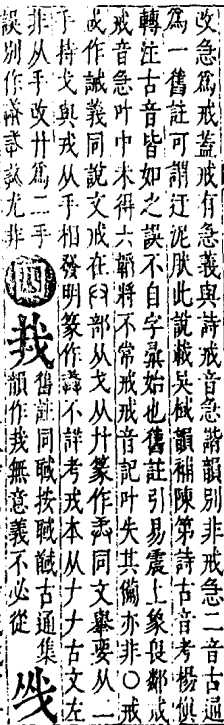 改急爲戒蓋戒有急義與詩戒音急諧韻別非戒急二音古通
爲一舊註可謂迂泥肰此說載吳棫韻補陳第詩古音考楊愼
轉注古音皆如之誤不自字彙始也舊註引易震上象畏鄰戒
戒音急叶中未得六韜將不常戒戒音記叶失其備亦非〇戒
或作誡義同說文戒在部从戈从廾篆作同文舉要从一
手持戈與戎从手相發明篆作不詳考戒本从𠂇𠂇古文左
非从手改廾爲二手
誤別作尤非
四
舊註同聝按聝馘古通集
韻作無意義不必从